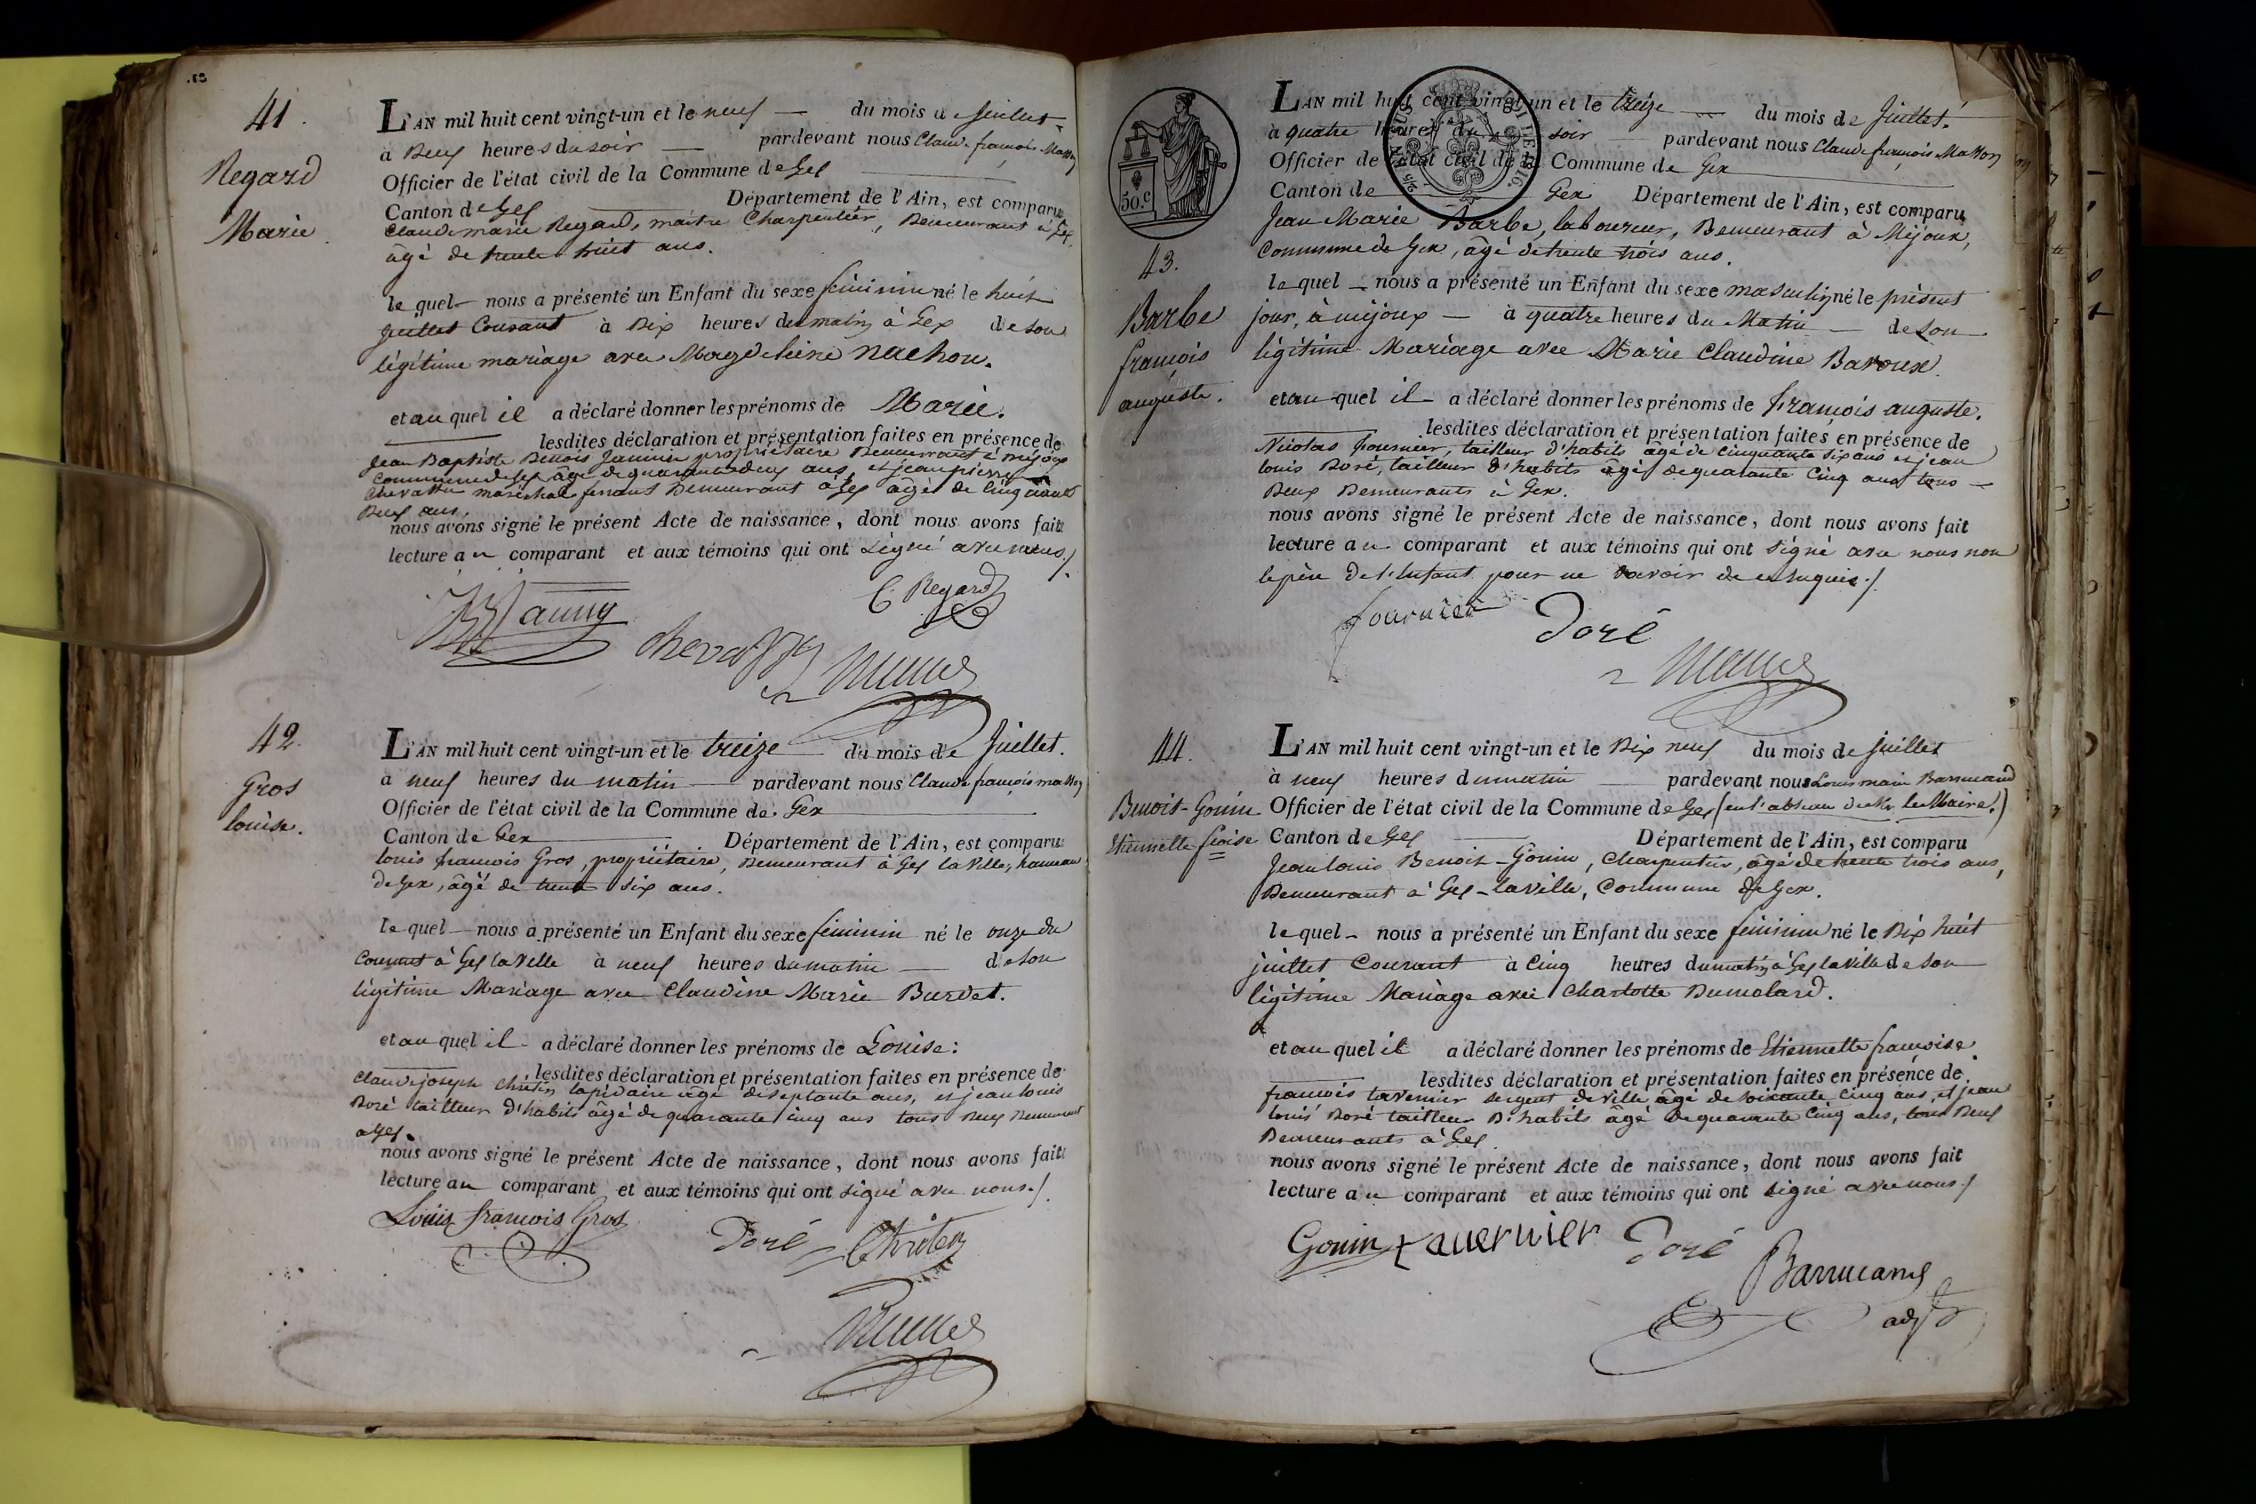 41.
Regard
Marie
L'AN mil huit cent vingt-un et le neuf du mois de Juillet
à Deux heures du soir pardevant nous Claude françois Masson
Officier de l'état civil de la Commune de Gex
Canton de Gex Département de l'Ain, est comparu
Claude marie Regard, maitre Charpentier, Demeurant à Gex,
âgé de trente huit ans.
le quel nous a présenté un Enfant du sexe féminin né le huit
Juillet Courant à Dix heures du matin à Gex de son
légitime mariage avec Magdeleine Nachon.
et au quel il a déclaré donner les prénoms de Marie.
lesdites déclaration et présentation faites en présence de
Jean Baptiste Benois Jannin propriétaire Demeurant à mijoux
commune de Gex âgé de quarante deux ans, et jean pierre
Chevassu maréchal ferrant Demeurant à Gex âgé de Cinquante
Deux ans,
nous avons signé le présent Acte de naissance, dont nous avons fait
lecture au comparant et aux témoins qui ont signé avec nous ./.
C. Regard
42.
Gros
louise.
L'AN mil huit cent vingt-un et le treize du mois de Juillet.
à neuf heures du matin pardevant nous Claude françois masson
Officier de l'état civil de la Commune de Gex
Canton de Gex Département de l'Ain, est comparu
louis francois Gros, propriétaire, Demeurant à Gex la Ville, hameau
de Gex, âgé de trente six ans.
le quel nous a présenté un Enfant du sexe féminin né le onze du
Courant à Gex la Ville à neuf heures du matin de son
légitime Mariage avec Claudine Marie Burdet.
et au quel il a déclaré donner les prénoms de Louise:
lesdites déclaration et présentation faites en présence de
Claude joseph Chrétin lapidaire âgé de septante ans, et jean louis
Doré tailleur d'habits âgé de quarante cinq ans tous Deux Demeurant
à Gex.
nous avons signé le présent Acte de naissance, dont nous avons fait
lecture au comparant et aux témoins qui ont signé avec nous ./.
Louis francois Gros
Doré
50.c
43.
Barbe
françois
auguste.
L'AN mil huit cent vingt-un et le treize du mois de Juillet.
à quatre heures du soir pardevant nous Claude françois Masson
Officier de l'état civil de la Commune de Gex
Canton de Gex Département de l'Ain, est comparu
Jean Marie Barbe, laboureur, Demeurant à Mijoux,
Commune de Gex, âgé de trente trois ans.
le quel nous a présenté un Enfant du sexe masculin né le présent
jour, à mijoux à quatre heures du Matin de son
légitime Mariage avec Marie Claudine Baroux.
et au quel il a déclaré donner les prénoms de François auguste.
lesdites déclaration et présentation faites en présence de
Nicolas fournier, tailleur d'habits âgé de cinquante six ans et jean
louis Doré, tailleur d'habits âgé de quarante Cinq ans tous
Deux Demeurants à Gex.
nous avons signé le présent Acte de naissance, dont nous avons fait
lecture au comparant et aux témoins qui ont signé avec nous non
le père de l'enfant pour ne savoir de ce enquis ./.
fournier
Doré
44.
Benoit-Gonin
Etiennette fçoise
L'AN mil huit cent vingt-un et le Dix neuf du mois de juillet
à neuf heures du matin pardevant nous Louis marie Barrucand
Officier de l'état civil de la Commune de Gex (en l'absence de Mr. le Maire.)
Canton de Gex Département de l'Ain, est comparu
Jean louis Benoit-Gonin, Charpentier, âgé de trente trois ans,
Demeurant à Gex-la Ville, Commune de Gex.
le quel nous a présenté un Enfant du sexe féminin né le Dix huit
juillet Courant à Cinq heures du matin à Gex la Ville de son
légitime Mariage avec Charlotte Dumolard.
et au quel il a déclaré donner les prénoms de Etiennette françoise
lesdites déclaration et présentation faites en présence de
francois tavernier sergent de Ville âgé de soixante Cinq ans, et jean
louis Doré tailleur D'habits âgé de quarante Cinq ans, tous Deux
Demeurants à Gex
nous avons signé le présent Acte de naissance, dont nous avons fait
lecture au comparant et aux témoins qui ont signé avec nous ./.
Gonin
tavernier
Doré
Barrucand